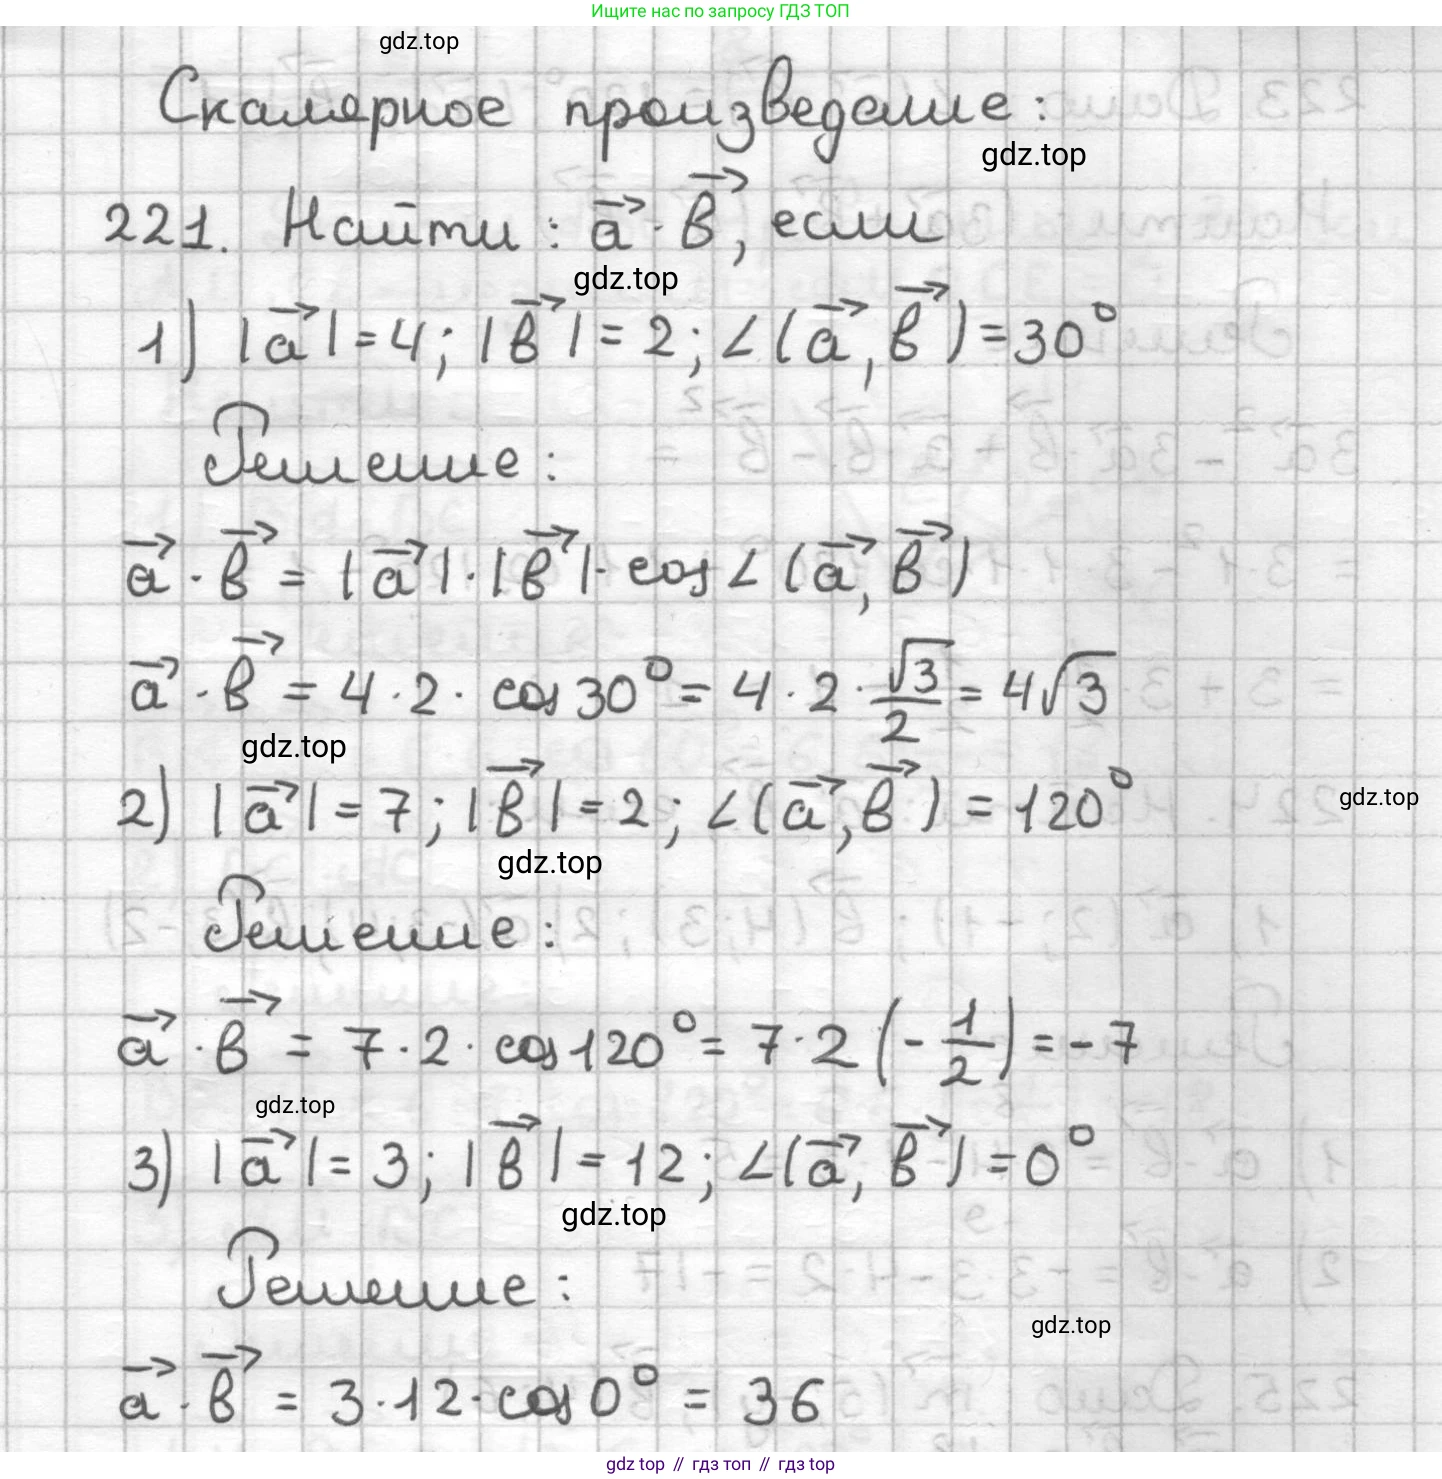 Ищите нас по запросу ГДЗ ТОП
gdz.top
Скалярное произведение:
gdz.top
221. Найти: a⃗ · b⃗, если
gdz.top
1) |a⃗| = 4; |b⃗| = 2; ∠(a⃗, b⃗) = 30°
Решение:
a⃗ · b⃗ = |a⃗| · |b⃗| · cos ∠(a⃗, b⃗)
a⃗ · b⃗ = 4 · 2 · cos 30° = 4 · 2 · √3/2 = 4√3
gdz.top
2) |a⃗| = 7; |b⃗| = 2; ∠(a⃗, b⃗) = 120°
gdz.top
gdz.top
Решение:
a⃗ · b⃗ = 7 · 2 · cos 120° = 7 · 2 (-1/2) = -7
gdz.top
3) |a⃗| = 3; |b⃗| = 12; ∠(a⃗, b⃗) = 0°
gdz.top
Решение:
gdz.top
a⃗ · b⃗ = 3 · 12 · cos 0° = 36
gdz top // гдз топ // гдз top